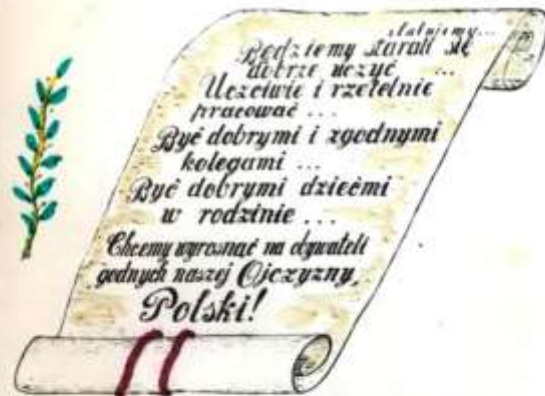 ślubujemy...
Będziemy starali się
dobrze uczyć ...
Uczciwie i rzetelnie
pracować ...
Być dobrymi i zgodnymi
kolegami ...
Być dobrymi dziećmi
w rodzinie ...
Chcemy wyrosnąć na obywateli
godnych naszej Ojczyzny,
Polski!